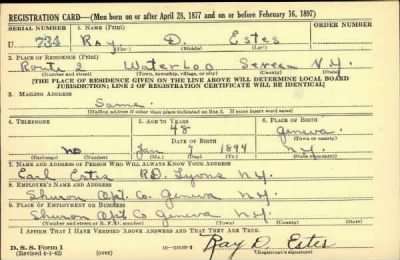 REGISTRATION CARD—(Men born on or after April 28, 1877 and on or before February 16, 1897)
SERIAL NUMBER 1. NAME (Print) ORDER NUMBER
U 734 Ray D. Estes
(First) (Middle) (Last)
2. PLACE OF RESIDENCE (Print)
Route 2 Waterloo Seneca N.Y.
(Number and street) (Town, township, village, or city) (County) (State)
[THE PLACE OF RESIDENCE GIVEN ON THE LINE ABOVE WILL DETERMINE LOCAL BOARD
JURISDICTION; LINE 2 OF REGISTRATION CERTIFICATE WILL BE IDENTICAL]
3. MAILING ADDRESS
Same
[Mailing address if other than place indicated on line 2. If same insert word same]
4. TELEPHONE 5. AGE IN YEARS 6. PLACE OF BIRTH
48 Geneva
DATE OF BIRTH (Town or county)
no Jan 7 1894 N.Y.
(Exchange) (Number) (Mo.) (Day) (Yr.) (State or country)
7. NAME AND ADDRESS OF PERSON WHO WILL ALWAYS KNOW YOUR ADDRESS
Earl Estes R.D. Lyons N.Y.
8. EMPLOYER'S NAME AND ADDRESS
Co. Geneva N.Y.
9. PLACE OF EMPLOYMENT OR BUSINESS
Co Geneva N.Y.
(Number and street or R. F. D. number) (Town) (County) (State)
I AFFIRM THAT I HAVE VERIFIED ABOVE ANSWERS AND THAT THEY ARE TRUE.
D. S. S. Form 1
(Revised 4-1-42) (over) Ray D. Estes
(Registrant's signature)